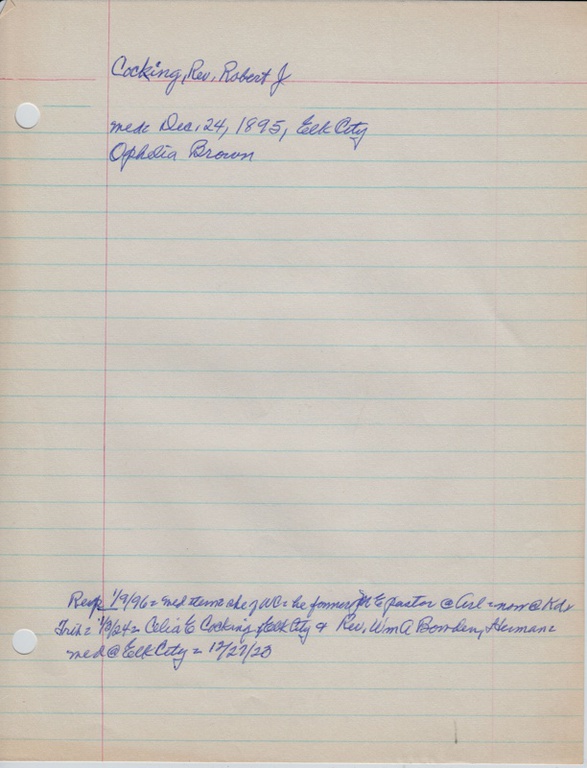 Cocking, Rev. Robert J
med: Dec. 24, 1895, Elk City
Ophelia Brown
Rep 1/9/96 = med item she of WC = he former ME pastor @ Arl = now @
Trib = 1/3/24 = Celia E Cocking of Elk City & Rev. Wm A Bowden, Herman =
med @ Elk City = 12/27/23